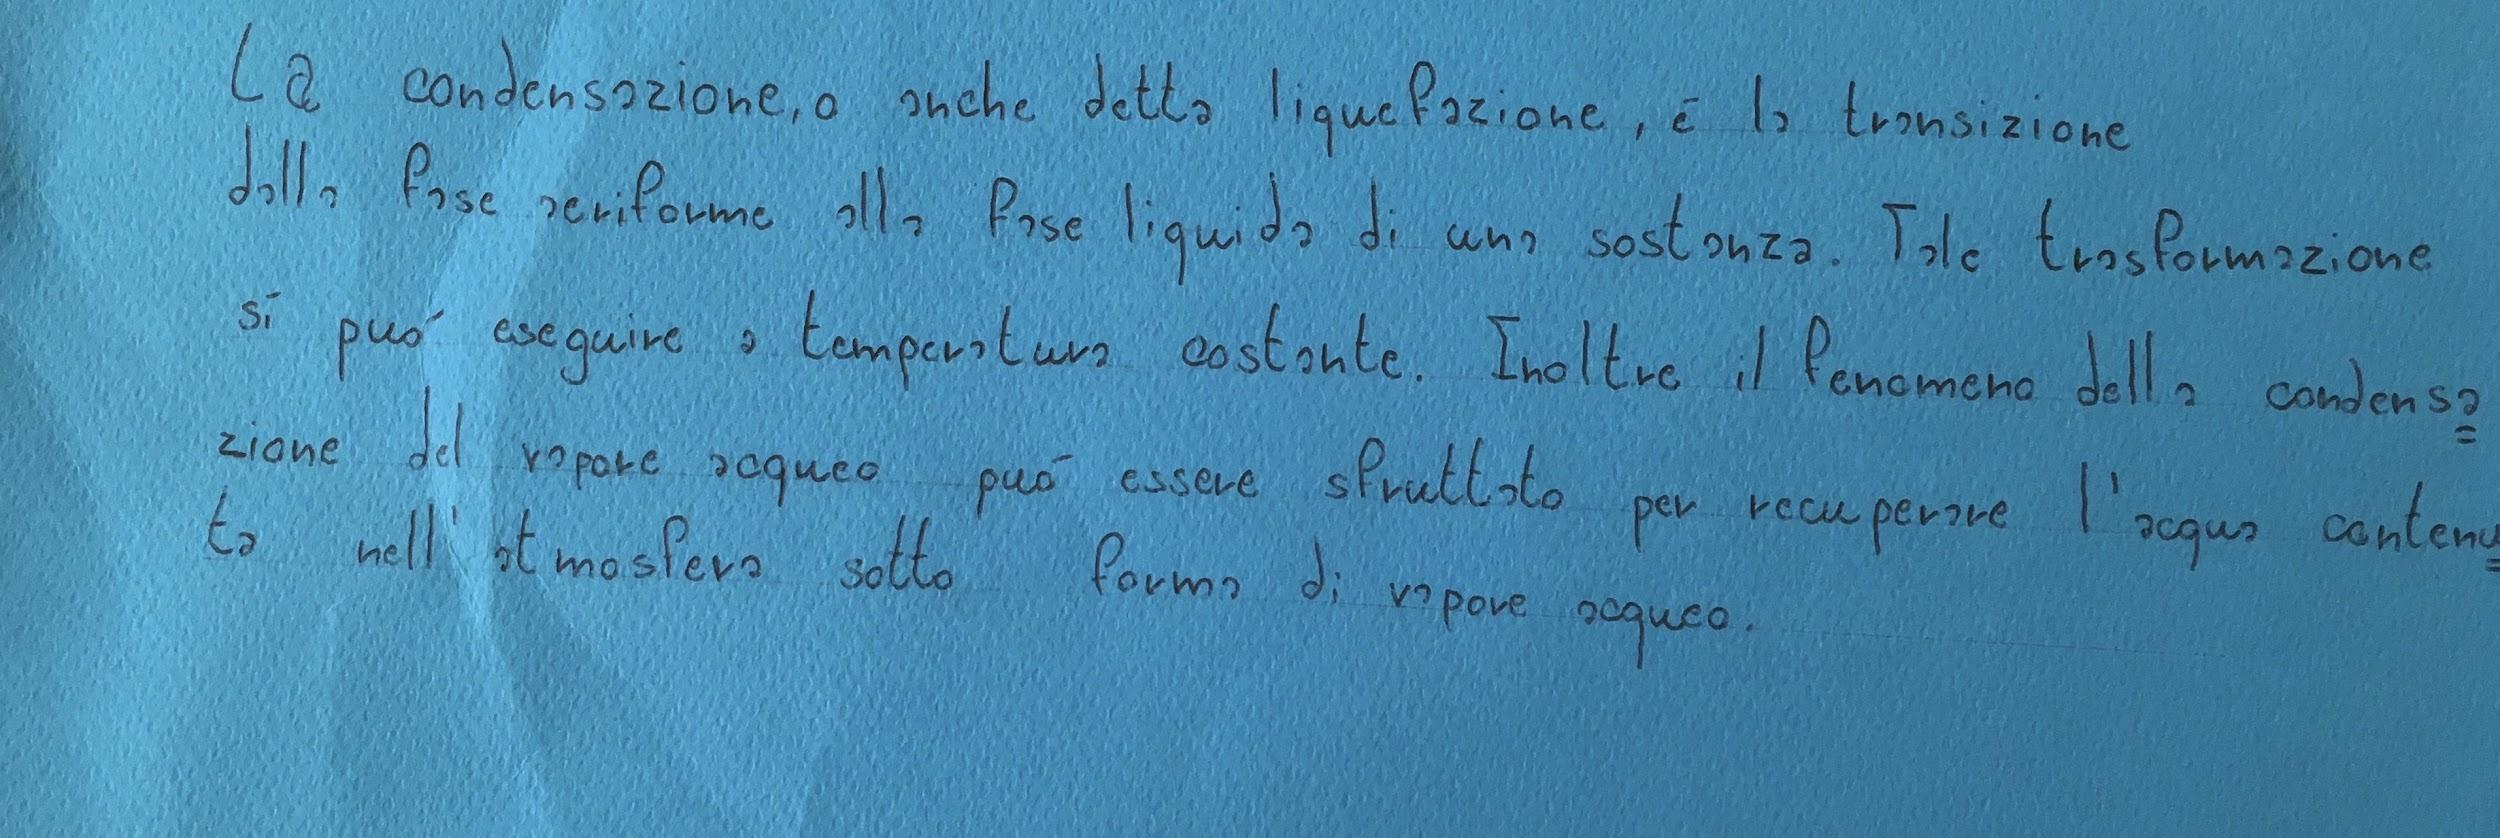 La condensazione, o anche detta liquefazione, è la transizione
dalla fase aeriforme alla fase liquida di una sostanza. Tale trasformazione
si può eseguire a temperatura costante. Inoltre il fenomeno della condensa=
zione del vapore acqueo può essere sfruttato per recuperare l'acqua contenu=
ta nell'atmosfera sotto forma di vapore acqueo.